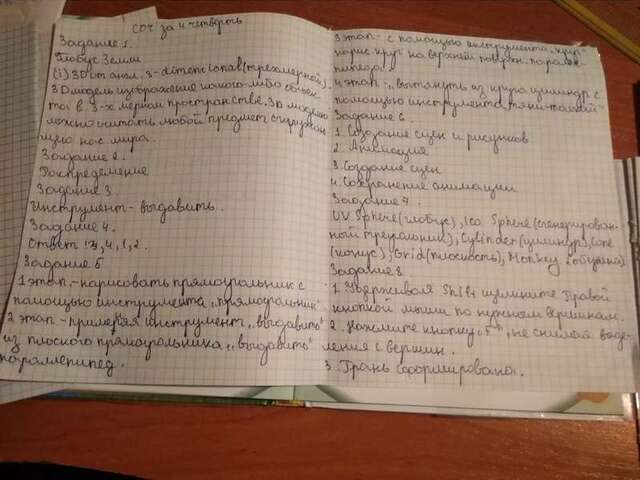 СОЧ за 4 четверть
Задание 1.
Глобус Земли
(i) 3D от англ. 3-dimensional (трехмерной).
3D модель изображение какого-либо объек
та в 3-х мерном пространстве. 3D моделью
можно считать любой предмет окружаю
щего нас мира.
Задание 2.
Распределение
Задание 3.
Инструмент - выдавить.
Задание 4.
Ответ: 3, 4, 1, 2.
Задание 5
1 этап - нарисовать прямоугольник с
помощью инструмента „прямоугольник"
2 этап - применяя инструмент „выдавить"
из плоского прямоугольника „выдавить"
параллепипед.
3 этап - с помощью инструмента „круг"
нарис. круг на верхней поверхн. паралле-
пипеда.
4 этап - „вытянуть из круга цилиндр с
помощью инструмента „тяни-толкай"
Задание 6.
1. Создание сцен и рисунков
2. Анимация
3. Создание сцен
4. Сохранение анимации
Задание 7.
UV Sphere (глобус), Ico Sphere (сгенерирован-
ный треугольник), Cylinder (цилиндр), Cone
(конус), Grid (плоскость), Monkey (обезьяна)
Задание 8
1. Удерживая Shift щелкните Правой
кнопкой мыши по нужным вершинам.
2. Нажмите кнопку „F", не снимая выде-
ления с вершин.
3. Грань сформирована.